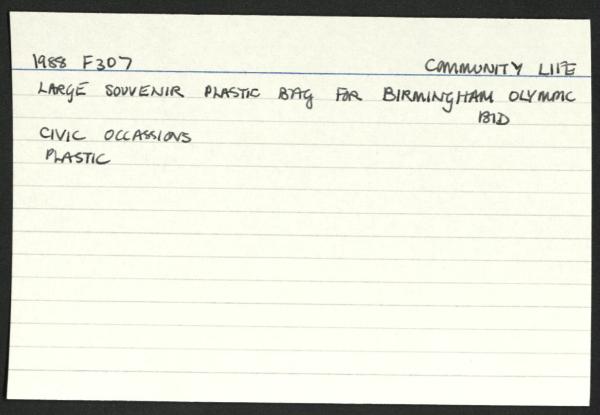 1988 F307 COMMUNITY LIFE
LARGE SOUVENIR PLASTIC BAG FOR BIRMINGHAM OLYMPIC
BID
CIVIC OCCASSIONS
PLASTIC